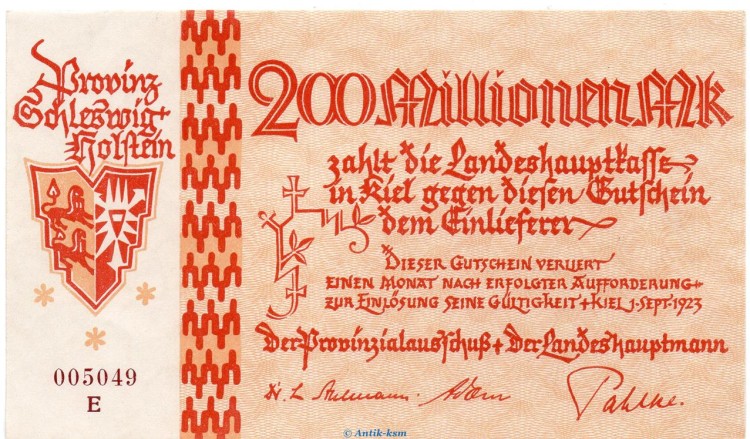 Provinz
Schleswig-
Holstein
005049
E
200 Millionen Mk
zahlt die Landeshauptkasse
in Kiel gegen diesen Gutschein
dem Einlieferer
Dieser Gutschein verliert
einen Monat nach erfolgter Aufforderung
zur Einlösung seine Gültigkeit + Kiel 1. Sept. 1923
Der Provinzialausschuß + Der Landeshauptmann
Pahlke.
© Antik-ksm